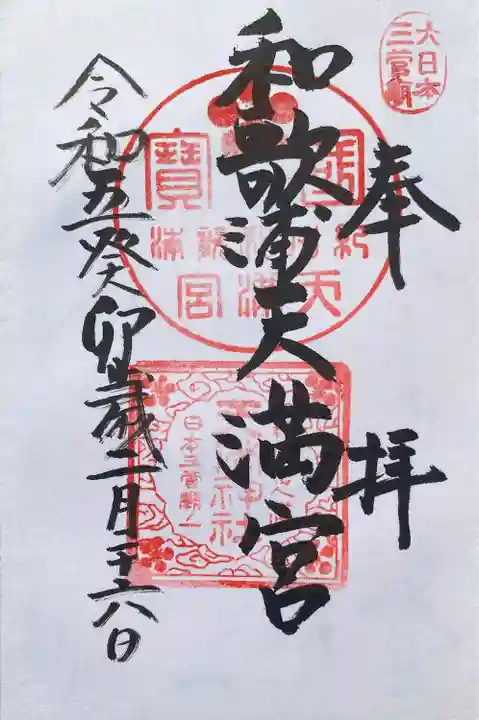 奉拝
和歌浦天満宮
令和五癸卯歳二月二十六日
大日本
三菅廟
日本三菅廟一